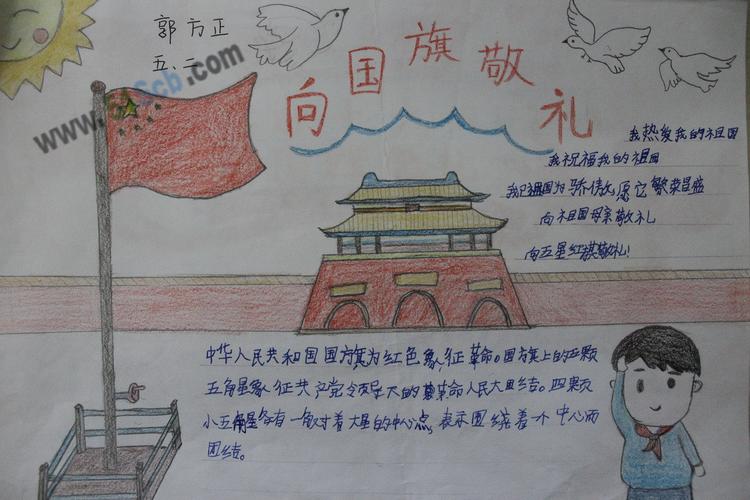 郭方正
五、二
向国旗敬礼
我热爱我的祖国
我祝福我的祖国
我以祖国为骄傲愿它繁荣昌盛
向祖国母亲敬礼
向五星红旗敬礼!
中华人民共和国国旗为红色象征革命。国旗上的五颗
五角星象征共产党领导下的革命人民大团结。四颗
小五角星各有一角对着大星的中心点,表示围绕着一个中心而
团结。